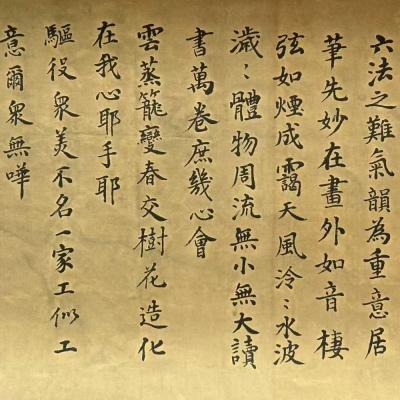 六法之難氣韻為重意居
筆先妙在畫外如音棲
弦如煙成靄天風泠〻水波
濊〻體物周流無小無大讀
書萬卷庶幾心會
雲蒸籠變春交樹花造化
在我心耶手耶
驅役衆美不名一家工似工
意爾衆無嘩